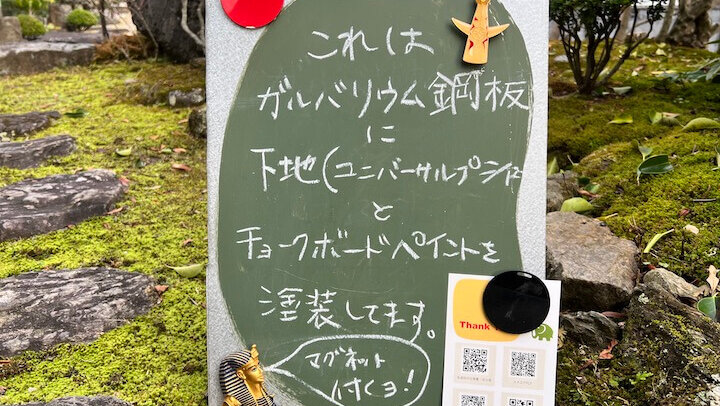 これは
ガルバリウム鋼板
に
下地(ユニバーサルプライ
と
チョークボードペイントを
塗装してます。
マグネット
付くョ!
Thank